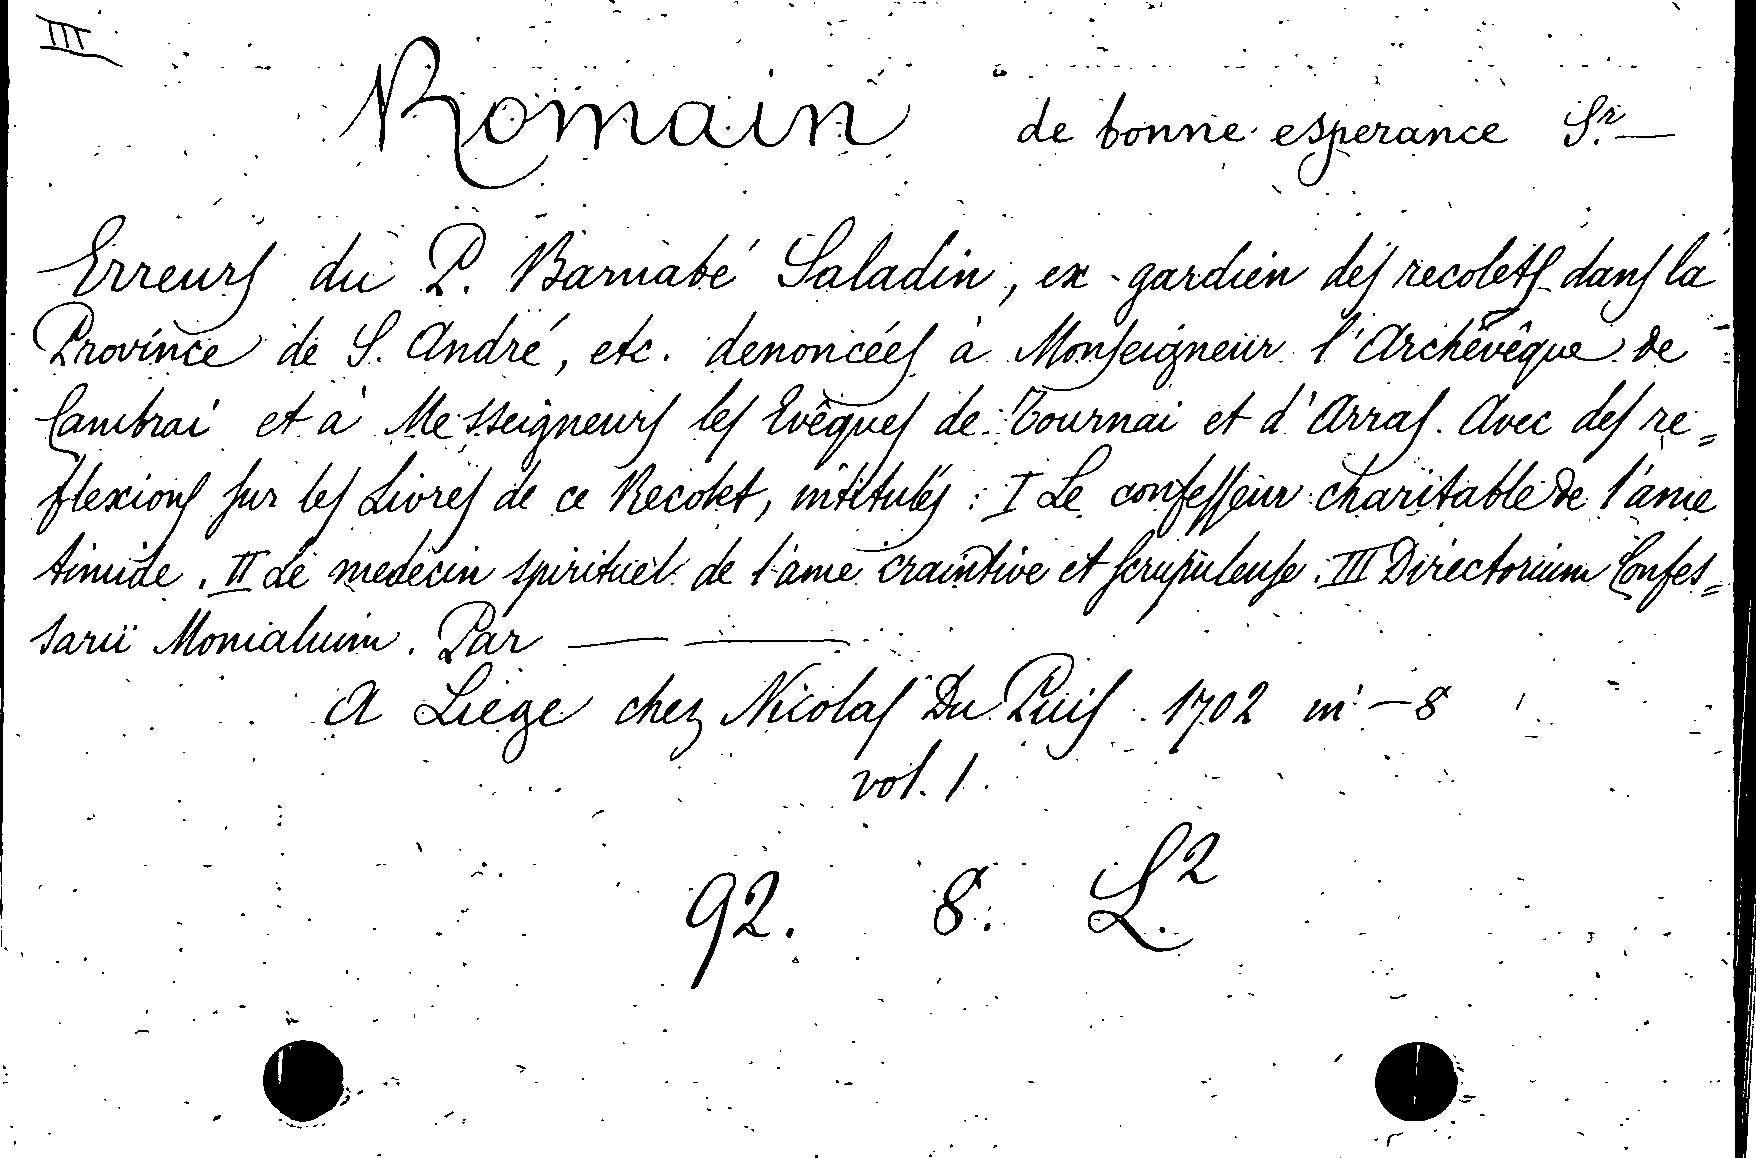 III
Romain de bonne esperance Sr. —
Erreurs du P. Barnabé Saladin, ex-gardien des recolets dans la
Province de S. André, etc. denoncées à Monseigneur l'Archêvêque de
Cambrai et à Messeigneurs les Evêques de Tournai et d'Arras. Avec des re=
flexions sur les Livres de ce Recolet, intitulés: I Le confesseur charitable de l'ame
timide. II Le medecin spirituel de l'ame craintive et scrupuleuse. III Directorium Confes=
sarii Monialium. Par — —
A Liege chez Nicolas Du Puis 1702 in-8
vol. 1.
92. 8. L.2